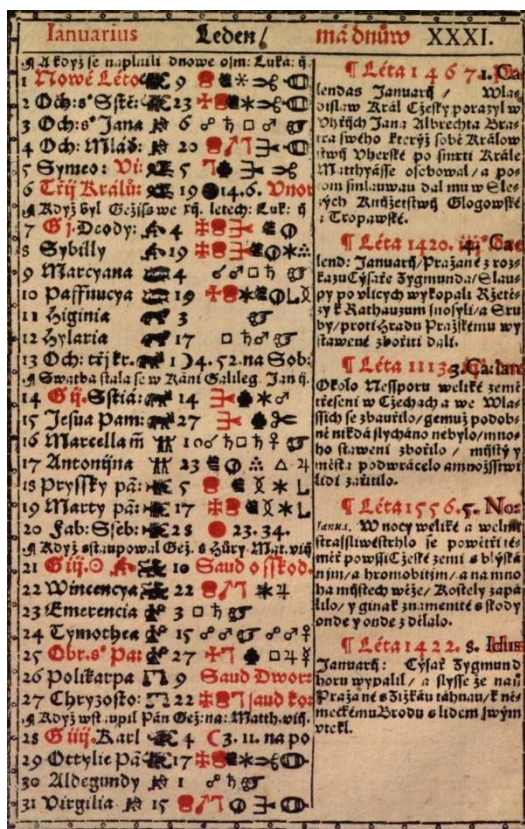 Ianuarius Leden/ má dnůw XXXI.
A když se naplnili dnowé osm: Luka: ij.
1 Nowé Léto 9
2 Och: sº Sště: 23
3 Och: sº Jana 6
4 Och: Mláď: 20
5 Symeo: Wi: 5
6 Třij Králů: 19 14.6. Wnor
Když byl Gežiš we xij. letech: Luk: ij
7 Gj. Deody: 4
8 Sybilly 19
9 Marcyana 4
10 Paffnucya 19
11 Higinia 3
12 Hylaria 17
13 Och: tří kr. 1 4. 52. na Sob:
Swatba stala se w Káni Galileg. Jan ij.
14 Gij. Sstia: 14
15 Jesua Pam: 27
16 Marcellam̃ 10
17 Antonijna 23
18 Pryssky pā: 5
19 Marty pā: 17
20 Fab: Sseb: 28 23. 34.
Když sstupowal Gež. s Hůry. Mat. viij
21 Giij. 10 Saud o sskod.
22 Wincencya 22
23 Emerencia 3
24 Tymothea 15
25 Obr. sº Pa: 27
26 Polikarpa 9 Saud Dwor:
27 Chryzosto: 22 saud ko:
Když wstaupil Pán Gež: na: Matth. viij.
28 Giiij. Karl 4 3. 11. na po
29 Ottylie Pā 17
30 Aldegundy 1
31 Virgilia 15
¶ Léta 1467. 1. Ca-
lendas Januarij / Wla-
dislaw Král Cžesky porazyl w
Vhřijch Jana Albrechta Bra-
tra swého kterýž sobě Králow-
stwij Vherské po smrti Krále
Matthyásse osobowal / a po-
tom smlauwau dal mu w Sle-
zých Knijžetstwij Glogowské
i Tropawské.
¶ Léta 1420. iiij. Ca-
lend: Januarij / Pražané z roz-
kazu Cýsaře Zygmunda / Slau-
py po vlicych wykopali Ržetě-
zy k Rathauzum snosyli / a Sru-
by / proti Hradu Pražskému wy-
stawené zbořiti dali.
¶ Léta 1113. 3. Ca: Ian:
Okolo Nessporu weliké země
třesení w Cžechach a we Wlas-
sých se zbauřilo / gemuž podob-
né nikdá slycháno nebylo / mno-
ho stawení zbořilo / mijsty y
města podwrácelo a množstwij
lidí zařitilo.
¶ Léta 1556. 5. No:
Ianua. W nocy weliké a welmi
strassliwé strhlo se powětří té-
měř powssij Cžeské zemi s blýská-
ním / a hromobitím / a na mno-
ha mijstech wěže / Kostely zapá-
lilo / y ginak znamenité sskody
onde y onde zdělalo.
¶ Léta 1422. 8. Idus
Januarij: Cýsař Zygmund
horu wypalil / a slysse že naň
Pražané s Žižkau táhnau / k ně-
meckému Brodu s lidem swým
vtekl.